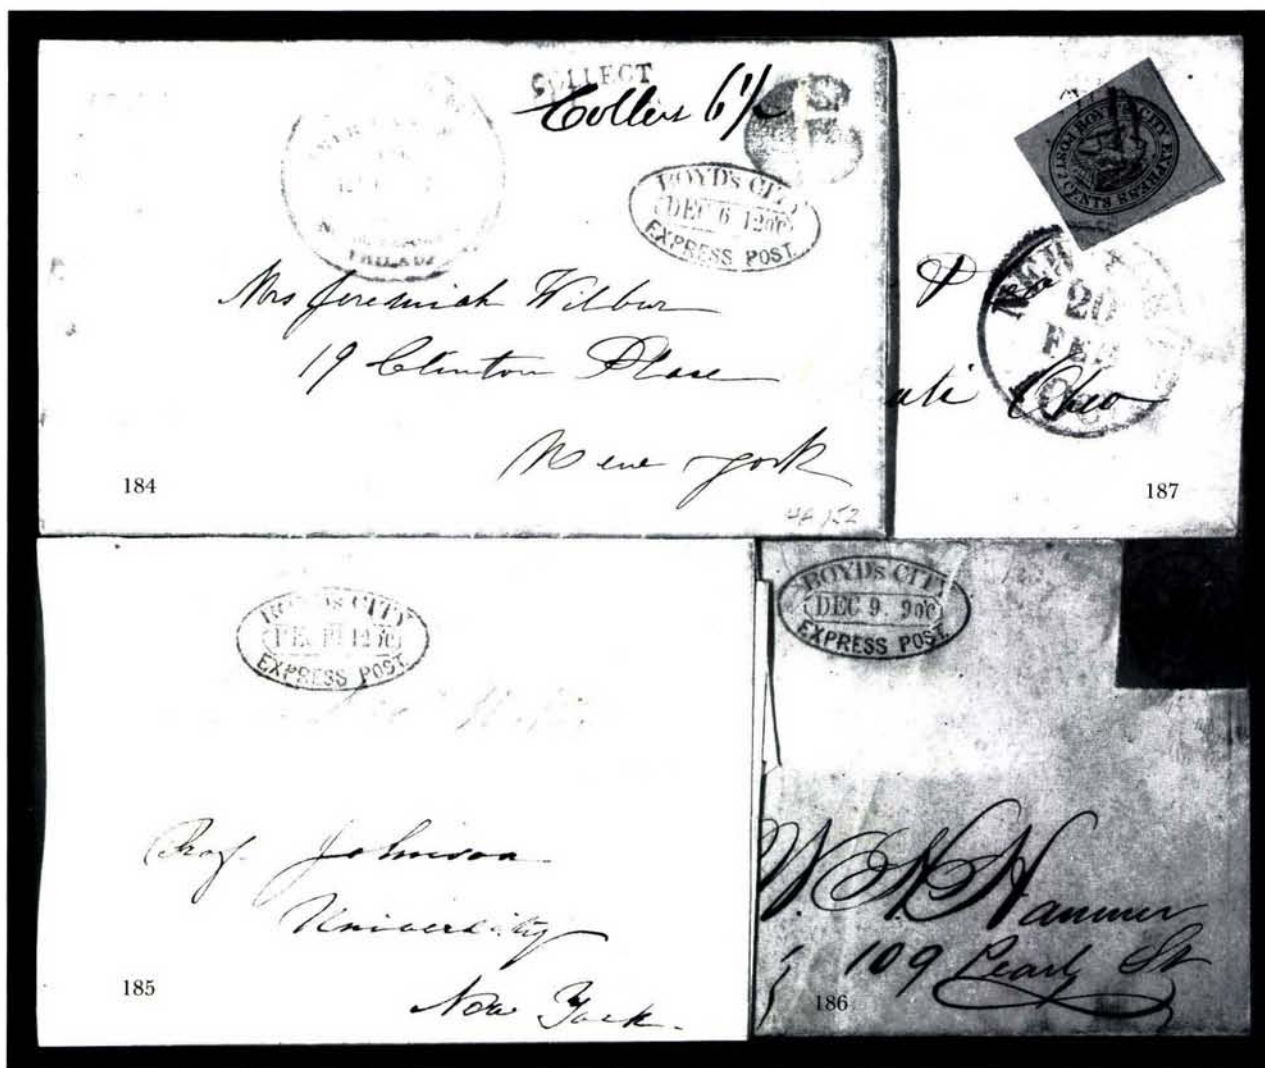 COLLECT
Collect 6½
BOYD's CITY
DEC 6 12 o'c
EXPRESS POST.
PHILADA
Mrs Jeremiah Wilbur
19 Clinton Place
New York
184
BOYD'S CITY EXPRESS POST 2 CENTS
NEW
20
FEB
Ohio
187
BOYD's CITY
12 o'c
EXPRESS POST.
Prof. Johnson
University
New York.
185
BOYD's CITY
DEC 9. 9 o'c
EXPRESS POST.
W. H. Hammer
109 Pearl St
186